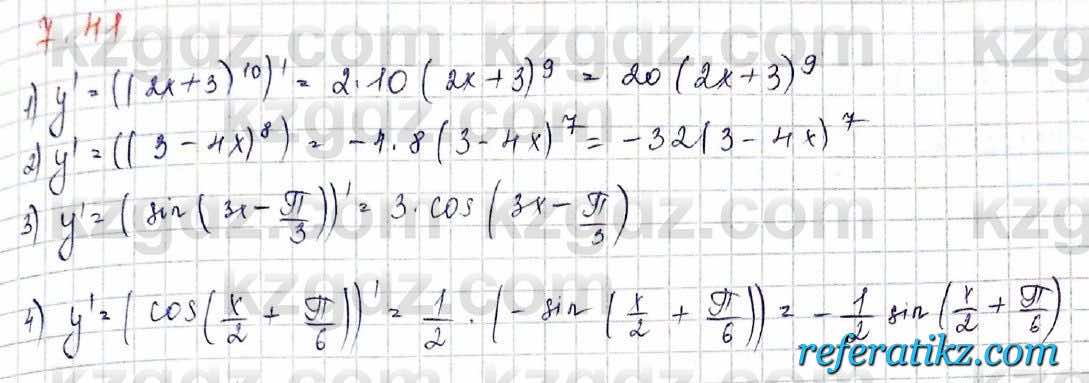 7.41
1) y' = ((2x+3)^10)' = 2·10(2x+3)^9 = 20(2x+3)^9
2) y' = ((3-4x)^8) = -4·8(3-4x)^7 = -32(3-4x)^7
3) y' = (sin(3x-π/3))' = 3·cos(3x-π/3)
4) y' = (cos(x/2+π/6))' = 1/2·(-sin(x/2+π/6)) = -1/2 sin(x/2+π/6)
referatikz.com